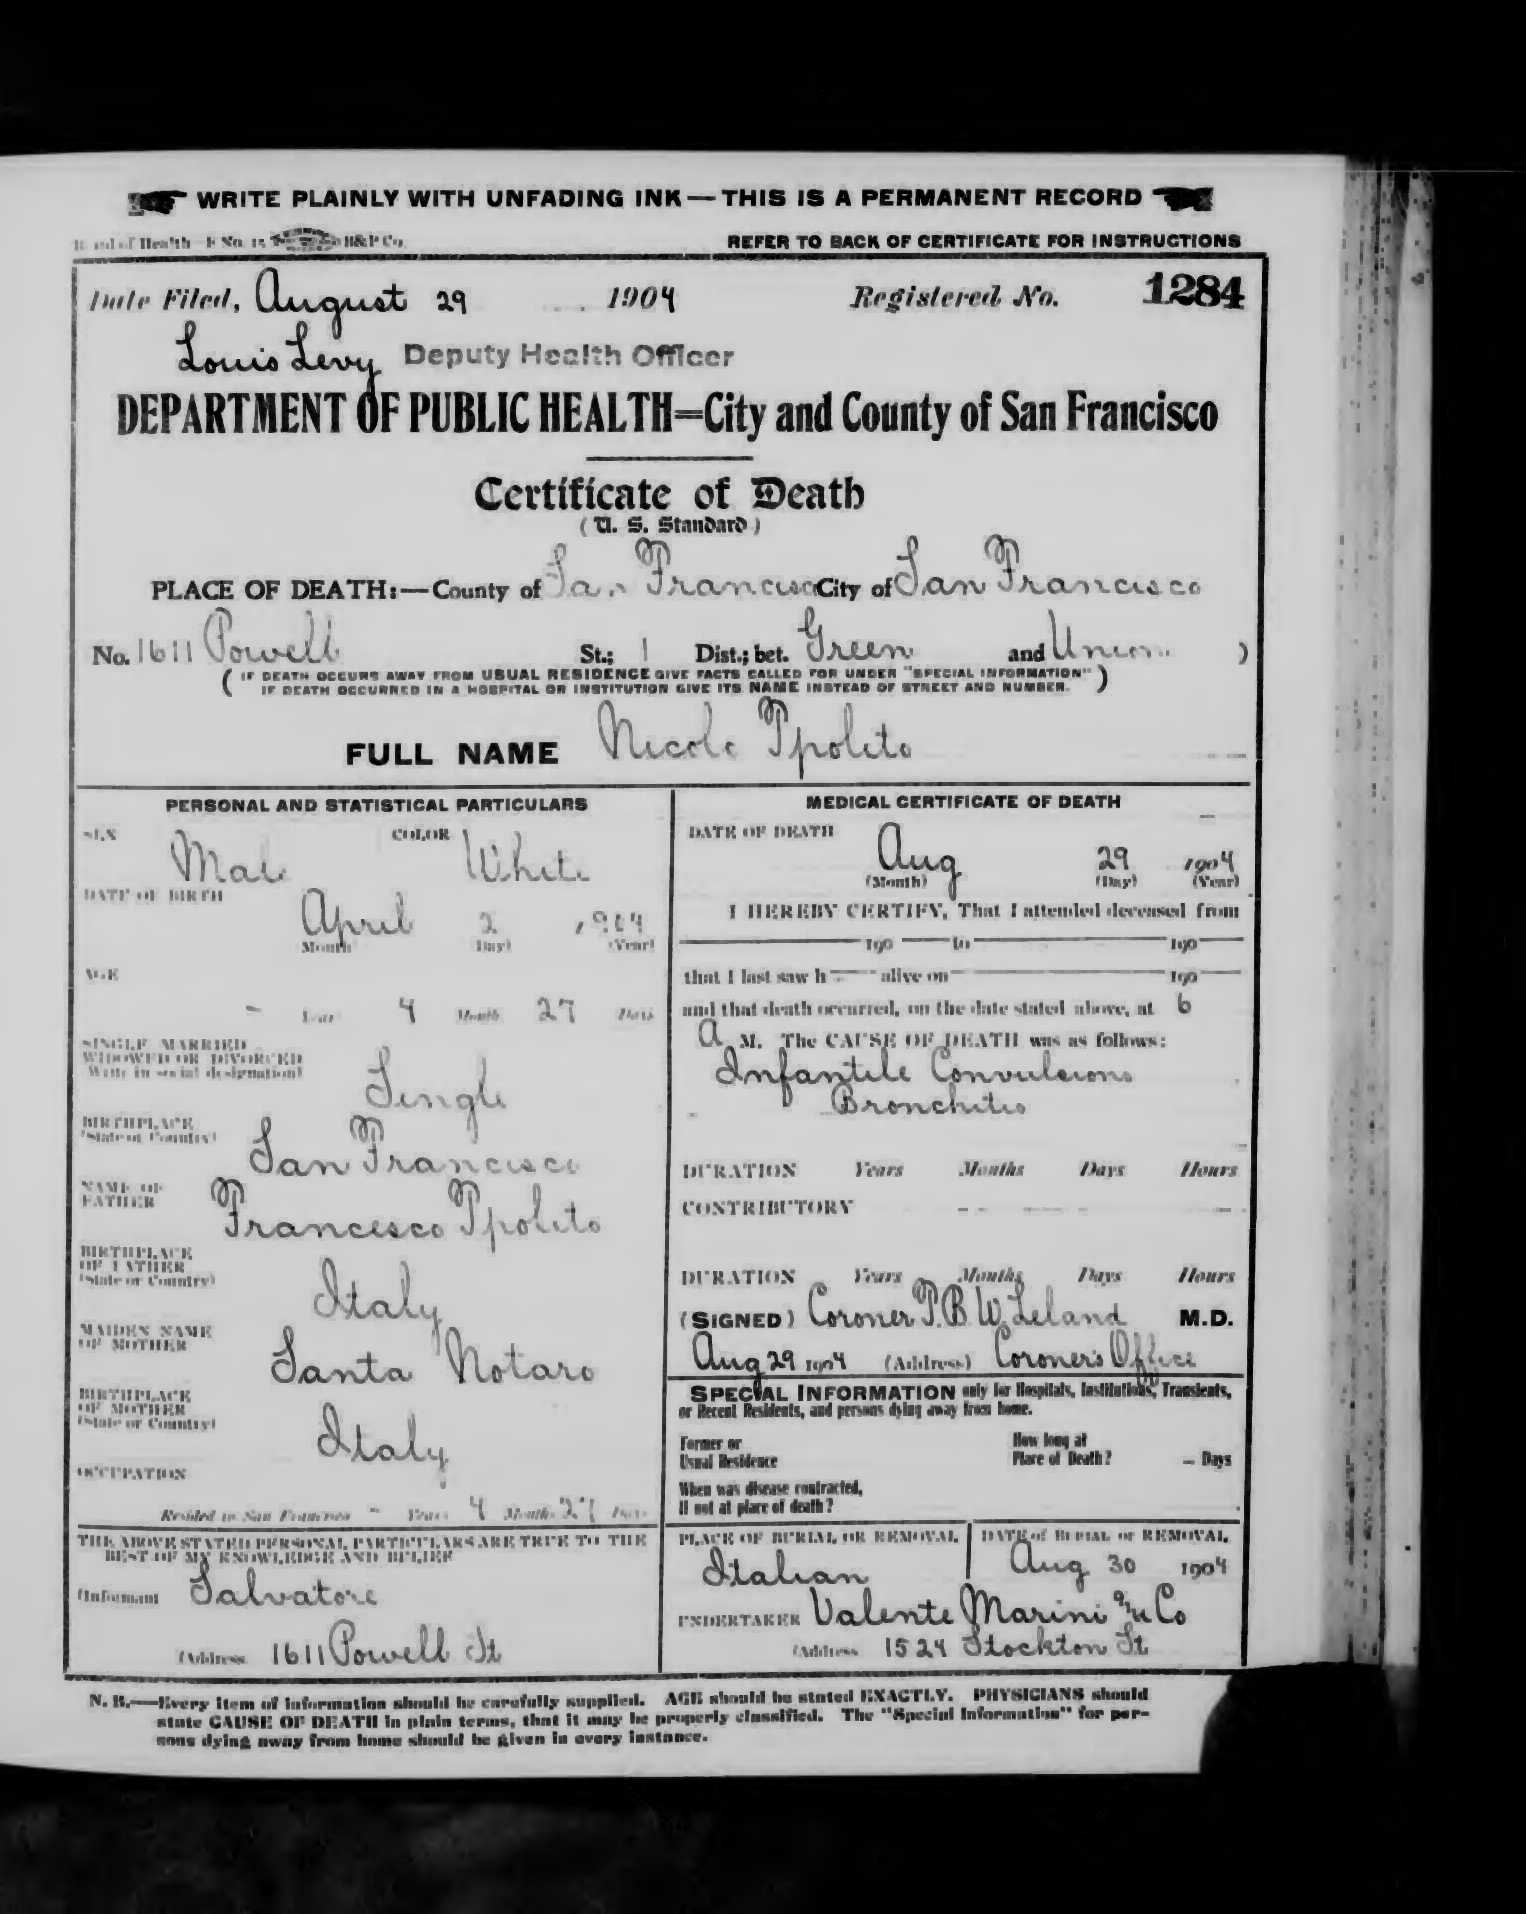 WRITE PLAINLY WITH UNFADING INK — THIS IS A PERMANENT RECORD
Board of Health—F No. 15 H&P Co.
REFER TO BACK OF CERTIFICATE FOR INSTRUCTIONS
Date Filed, August 29 1904 Registered No. 1284
Louis Levy Deputy Health Officer
DEPARTMENT OF PUBLIC HEALTH=City and County of San Francisco
Certificate of Death
(U. S. Standard)
PLACE OF DEATH:—County of San Francisco City of San Francisco
No. 1611 Powell St.; 1 Dist.; bet. Green and Union )
( IF DEATH OCCURS AWAY FROM USUAL RESIDENCE GIVE FACTS CALLED FOR UNDER "SPECIAL INFORMATION" )
IF DEATH OCCURRED IN A HOSPITAL OR INSTITUTION GIVE ITS NAME INSTEAD OF STREET AND NUMBER.
FULL NAME Nicolo Ipolito
PERSONAL AND STATISTICAL PARTICULARS
SEX Male COLOR White
DATE OF BIRTH
April 2 1904
(Month) (Day) (Year)
AGE
- Years 4 Months 27 Days
SINGLE MARRIED
WIDOWED OR DIVORCED
(Write in social designation)
Single
BIRTHPLACE
(State or Country)
San Francisco
NAME OF
FATHER
Francesco Ipolito
BIRTHPLACE
OF FATHER
(State or Country)
Italy
MAIDEN NAME
OF MOTHER
Santa Notaro
BIRTHPLACE
OF MOTHER
(State or Country)
Italy
OCCUPATION
Resided in San Francisco - Years 4 Months 27 Days
THE ABOVE STATED PERSONAL PARTICULARS ARE TRUE TO THE
BEST OF MY KNOWLEDGE AND BELIEF
(Informant Salvatore
(Address 1611 Powell St
MEDICAL CERTIFICATE OF DEATH
DATE OF DEATH
Aug 29 1904
(Month) (Day) (Year)
I HEREBY CERTIFY, That I attended deceased from
190 to 190
that I last saw h alive on 190
and that death occurred, on the date stated above, at 6
A M. The CAUSE OF DEATH was as follows:
Infantile Convulsions
Bronchitis
DURATION Years Months Days Hours
CONTRIBUTORY
DURATION Years Months Days Hours
(SIGNED) Coroner T. B. W. Leland M.D.
Aug 29 1904 (Address) Coroner's Office
SPECIAL INFORMATION only for Hospitals, Institutions, Transients,
or Recent Residents, and persons dying away from home.
Former or
Usual Residence
How long at
Place of Death? - Days
When was disease contracted,
If not at place of death?
PLACE OF BURIAL OR REMOVAL
Italian
DATE of BURIAL or REMOVAL
Aug 30 1904
UNDERTAKER Valente Marini & Co
(Address 1524 Stockton St
N. B.—Every item of information should be carefully supplied. AGE should be stated EXACTLY. PHYSICIANS should
state CAUSE OF DEATH in plain terms, that it may be properly classified. The "Special Information" for per-
sons dying away from home should be given in every instance.